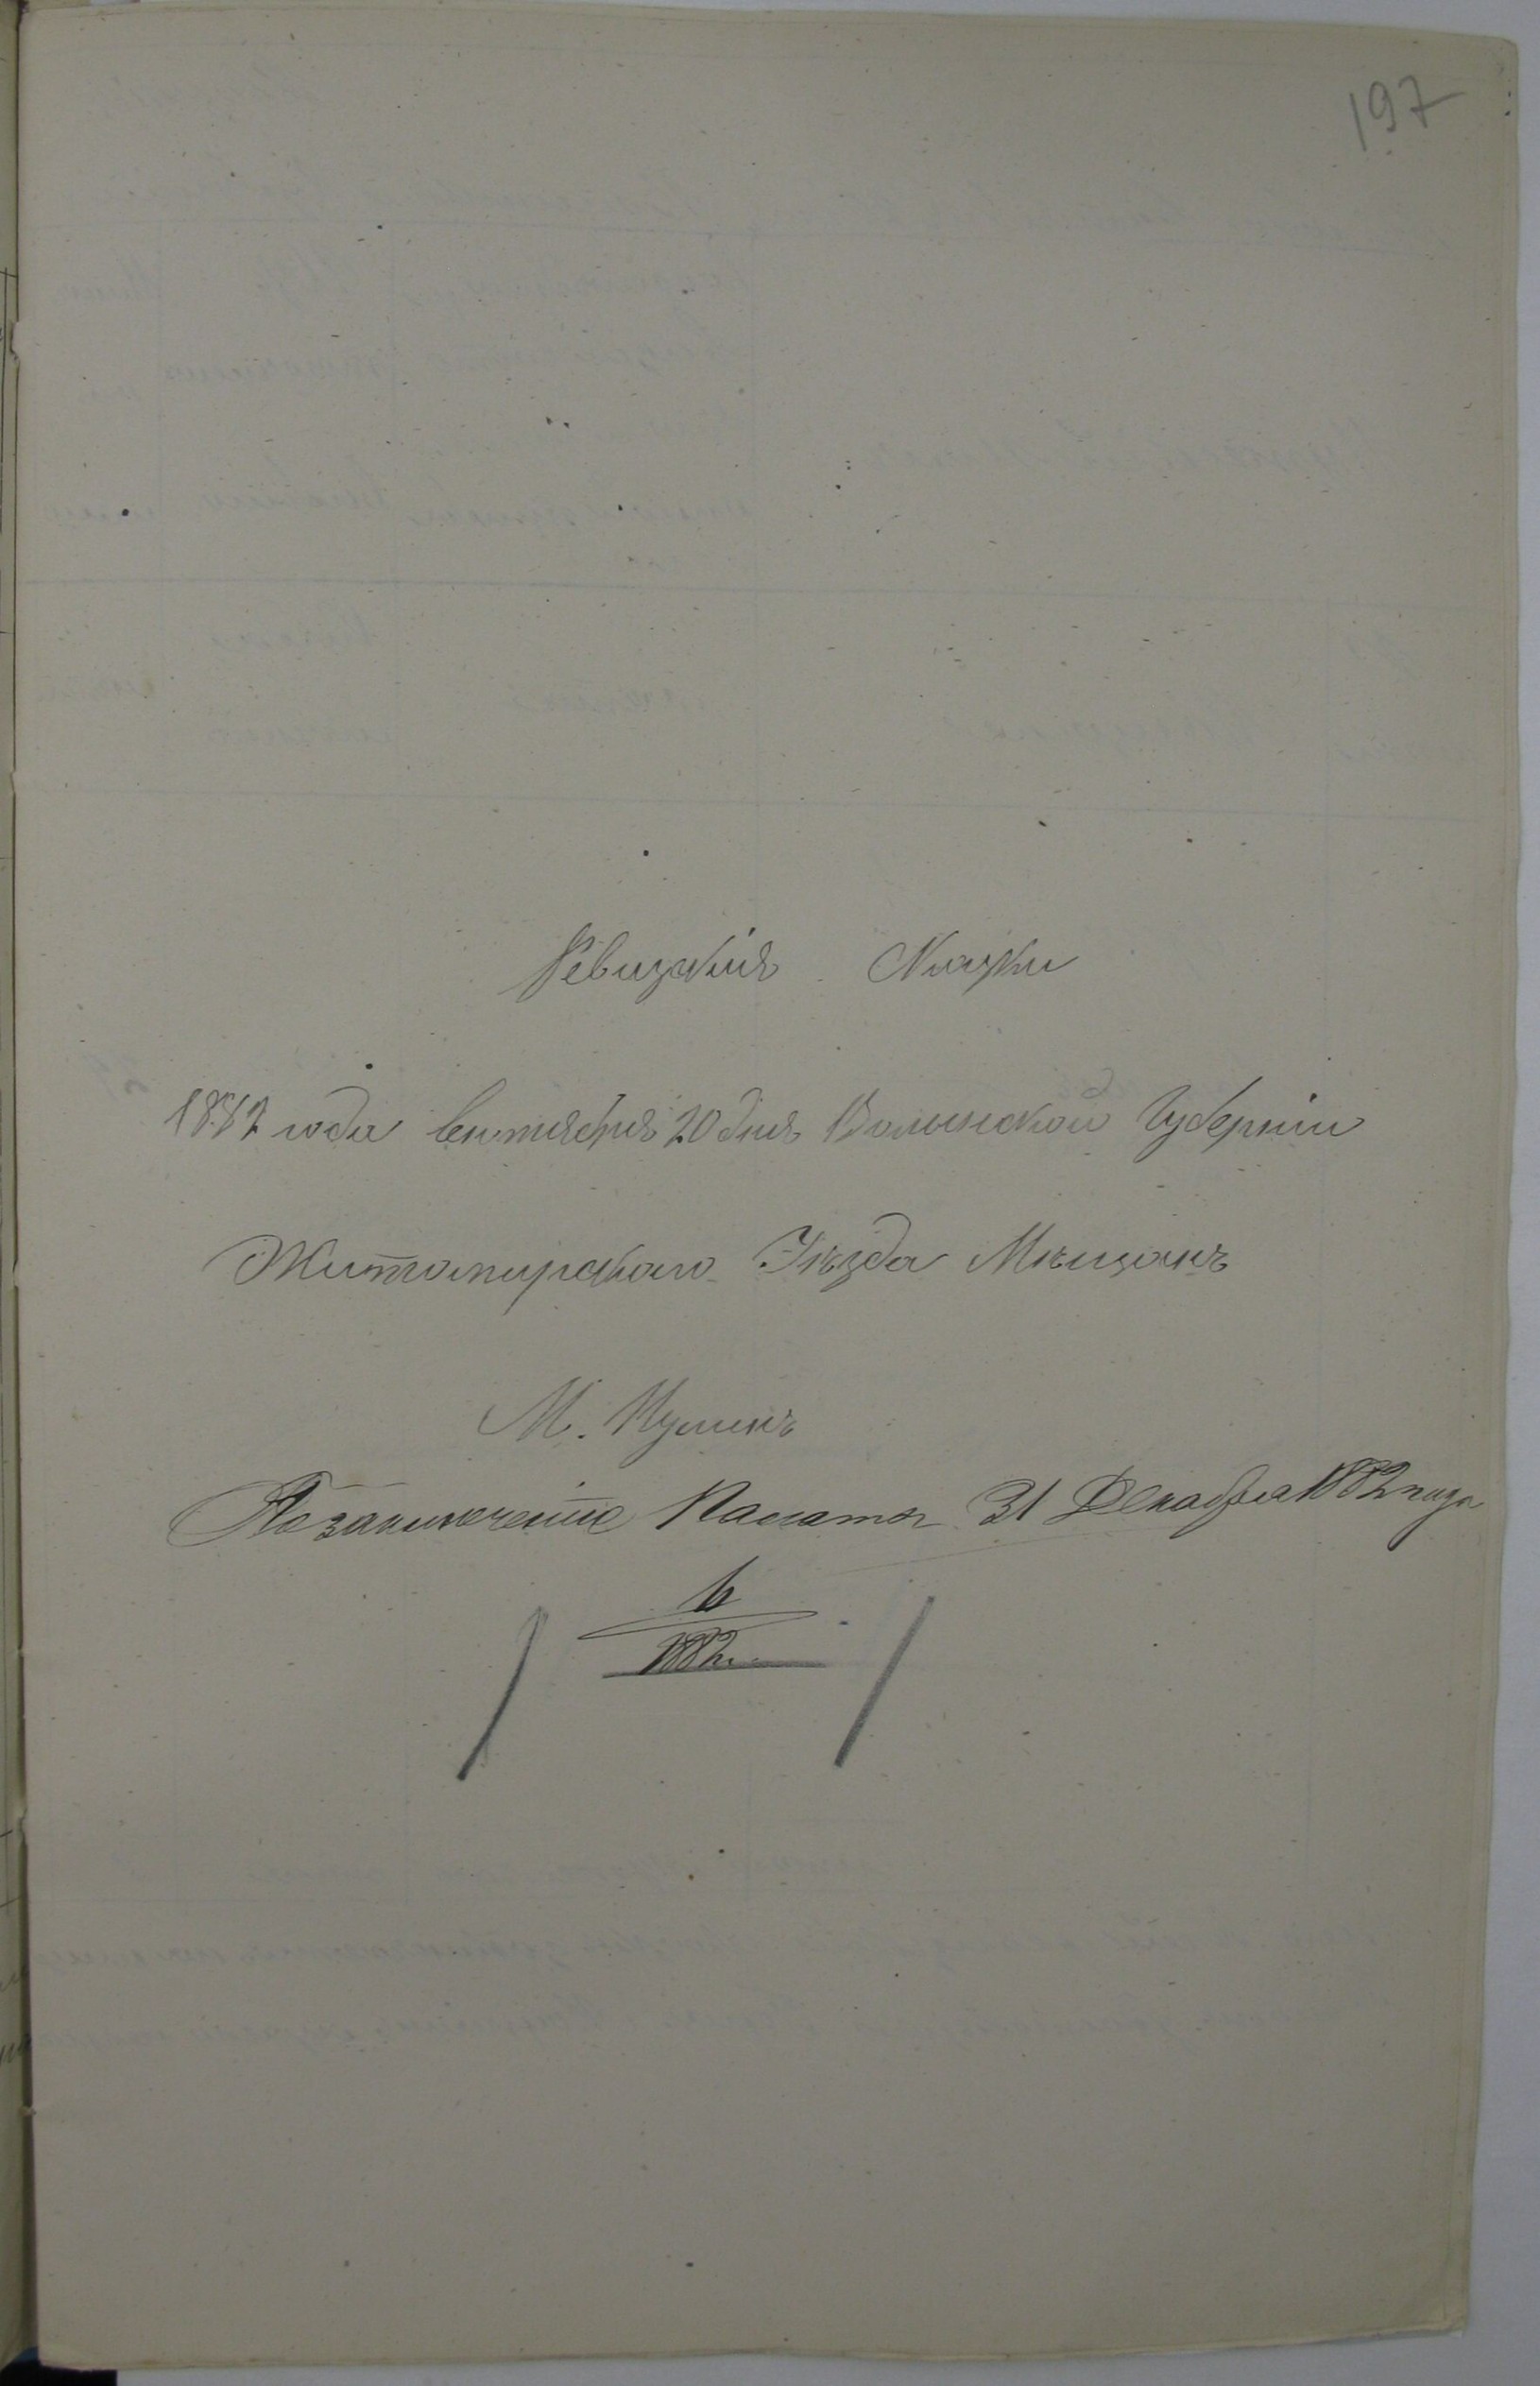 197
Ревизскія Сказки
1882 года Сентября 20 дня Волынской Губерніи
Житомирскаго Уѣзда Мѣщанъ
М. Кулинъ
По заключенію Палаты 31 Декабря 1882 года
6
1882